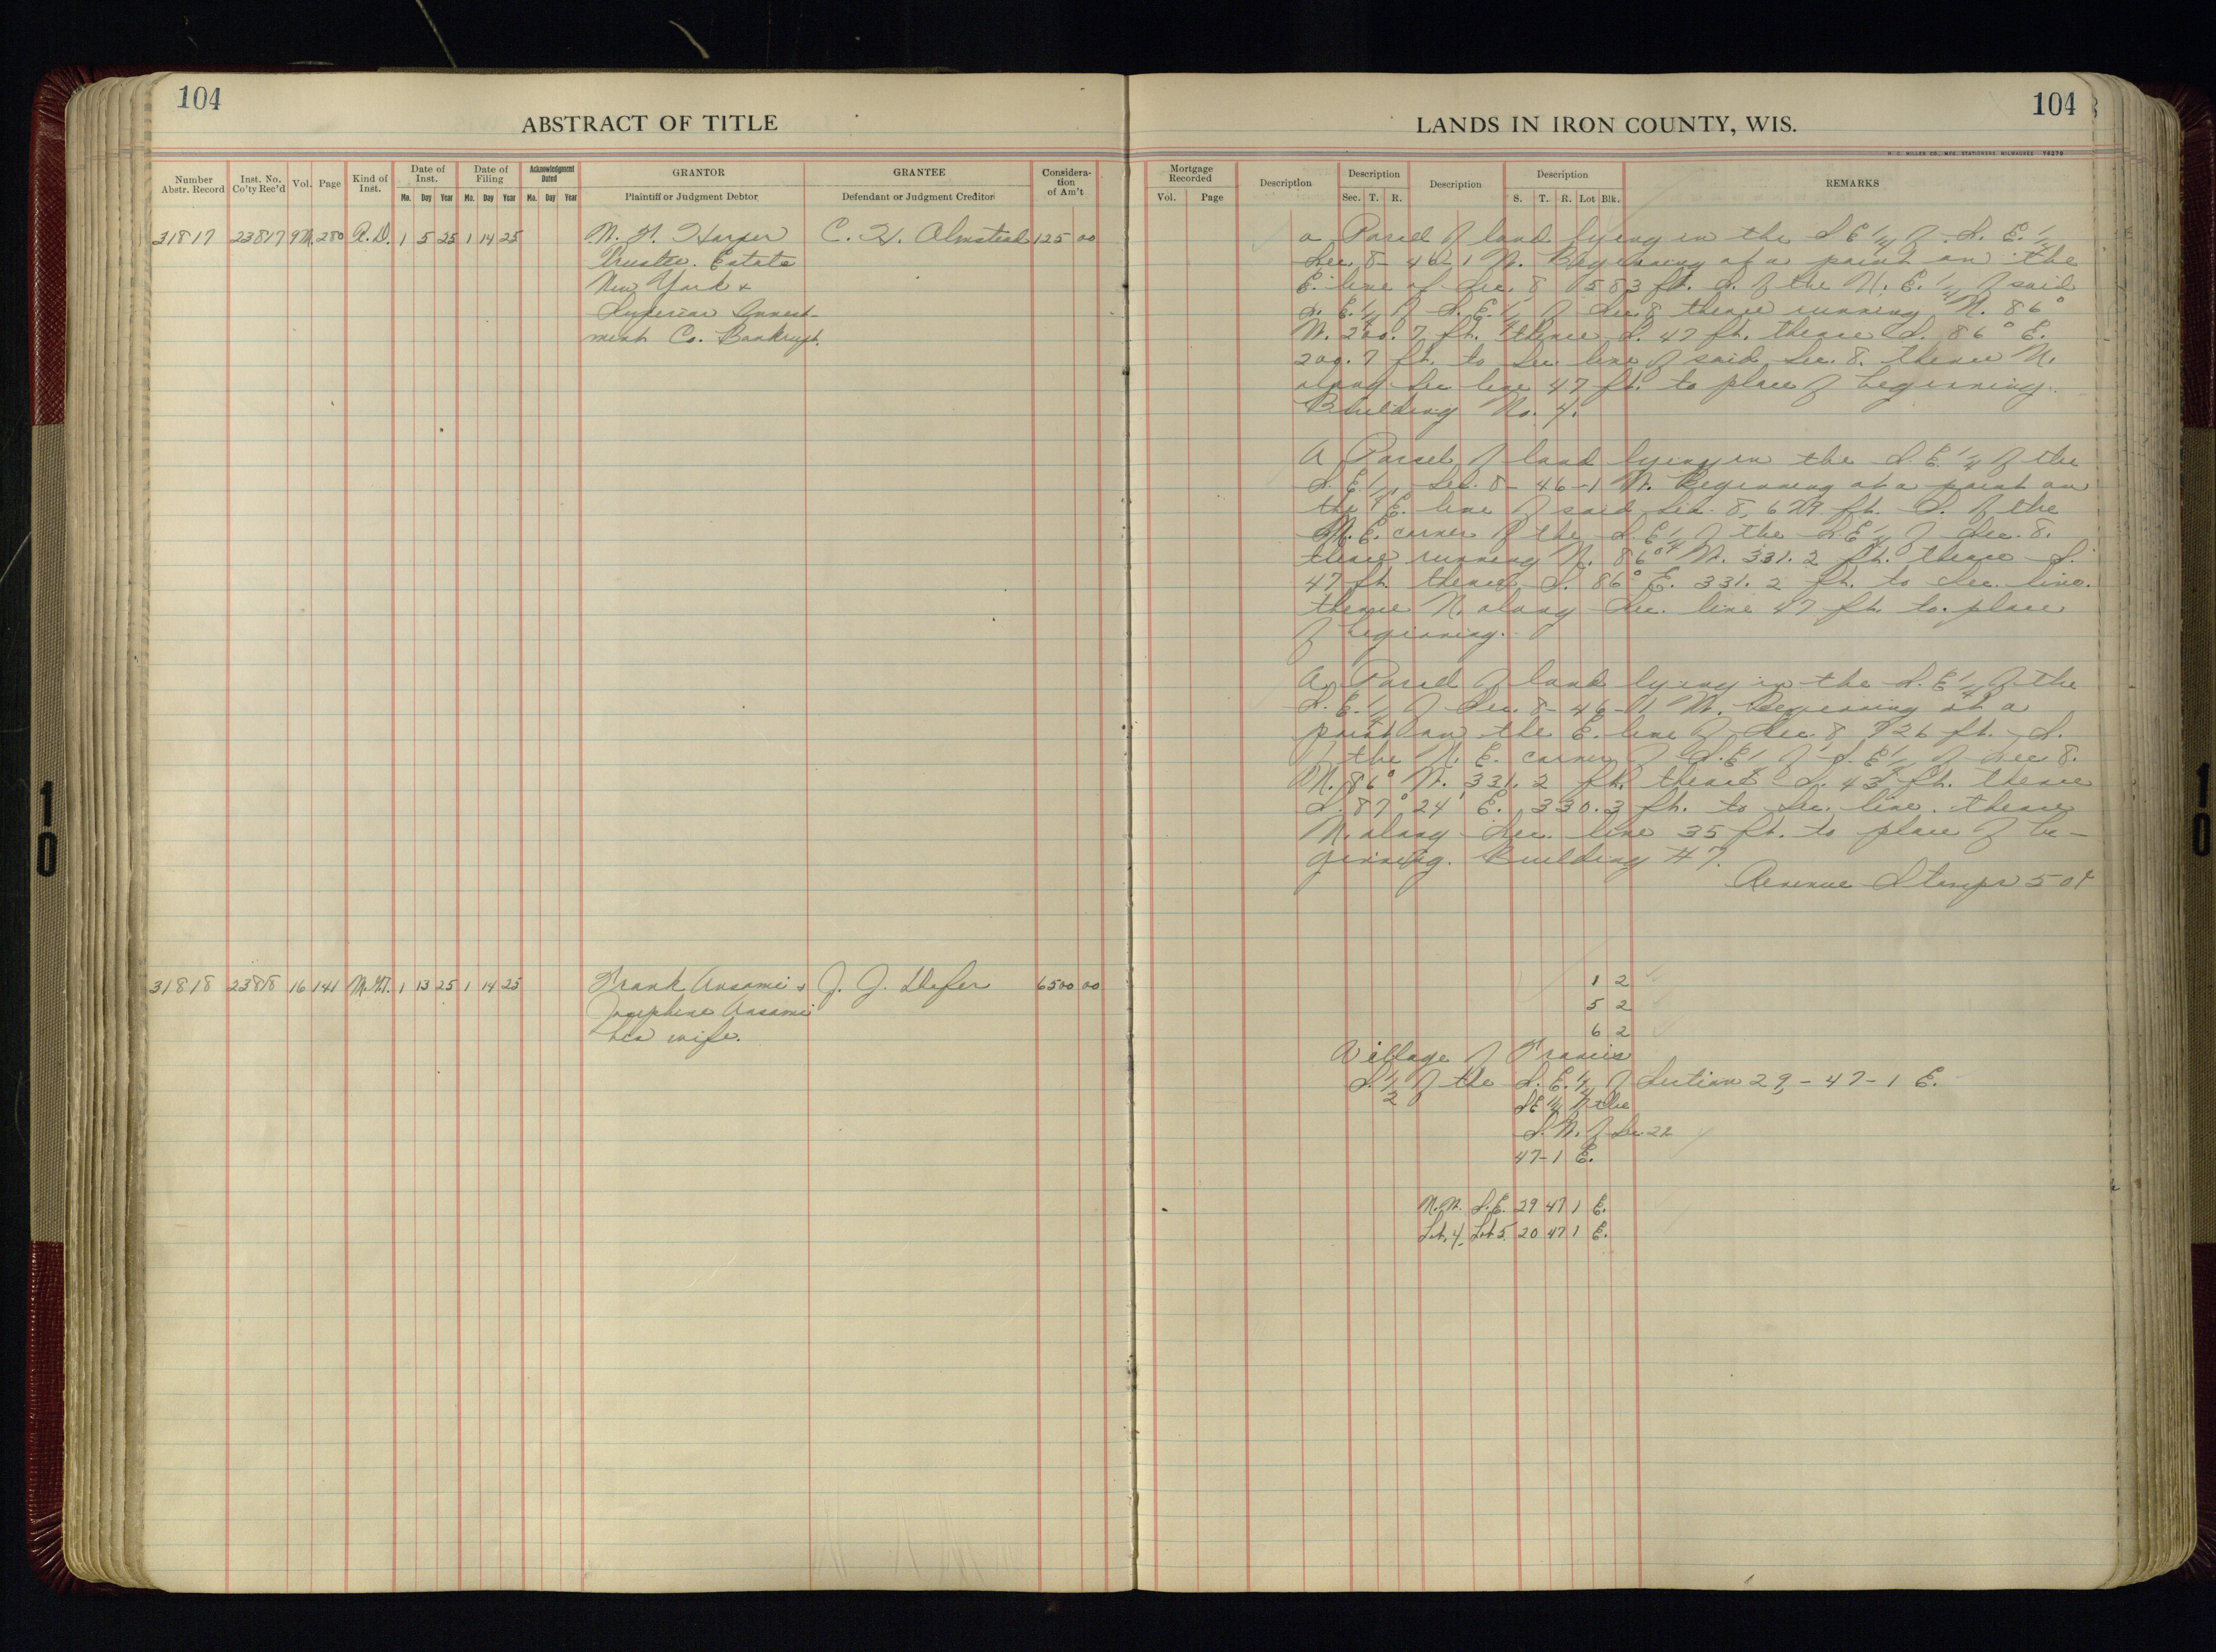 104
ABSTRACT OF TITLE
Number Abstr. Record
Inst. No. Co'ty Rec'd
Vol.
Page
Kind of Inst.
Date of Inst.
Mo. Day Year
Date of Filing
Mo. Day Year
Acknowledgment Dated
Mo. Day Year
GRANTOR
Plaintiff or Judgment Debtor
GRANTEE
Defendant or Judgment Creditor
Considera-
tion
of Am't
31817 23817 9M. 280 R. D. 1 5 25 1 14 25 C. H. Olmstead 125 00
Harper
Trustee. Estate
New York &
Superior Invest-
ment Co. Bankrupt.
31818 23818 16 141 1 13 25 1 14 25 Frank Ansami & J. J. Defer 6500 00
Josephine Ansami
his wife.
104
LANDS IN IRON COUNTY, WIS.
H. C. MILLER CO., MFG. STATIONERS, MILWAUKEE
Mortgage Recorded
Vol. Page
Description
Description
Sec. T. R.
Description
Description
S. T. R. Lot Blk.
REMARKS
a Parcel of land lying in the S E 1/4 of S. E. 1/4
Sec. 8 - 46 - 1 W. Beginning at a point on the
E. line of Sec. 8, 583 ft. S. of the N. E. 1/4 of said
S. E. 1/4 of S. E. 1/4 of Sec. 8 thence running N. 86°
W. 200.7 ft. thence S. 47 ft. thence S. 86° E.
200.7 ft. to Sec. line of said Sec. 8. thence N.
along Sec line 47 ft. to place of beginning.
Building No. 4.
A Parcel of land lying in the S. E. 1/4 of the
S. E. 1/4 Sec. 8 - 46 - 1 W. Beginning at a point on
the E. line of said Sec. 8, 679 ft. S. of the
N. E. corner of the S E 1/4 of the S E 1/4 of Sec. 8.
thence running N. 86° W. 331.2 ft. thence S.
47 ft. thence S. 86° E. 331.2 ft. to Sec. line.
thence N. along Sec. line 47 ft. to place
of beginning.
A Parcel of land lying in the S. E. 1/4 of the
S. E. 1/4 of Sec. 8 - 46 - 1 W. Beginning at a
point on the E. line of Sec. 8 726 ft. S.
of the N. E. corner of S. E 1/4 of S. E 1/4 of Sec. 8.
N. 86° W. 331.2 ft. thence S. 43 ft. thence
S. 87° 24' E. 330.3 ft. to Sec. line. thence
N. along Sec. line 35 ft. to place of be-
ginning. Building #7.
Revenue Stamps 50¢
1 2
5 2
6 2
Village of Francis
S. 1/2 of the S. E. 1/4 of Section 29 - 47 - 1 E.
S E 1/4 of the
S. W. of Sec. 22
47 - 1 E.
N. W. S. E. 29 47 1 E.
Lot. 4 Lot 5 20 47 1 E.